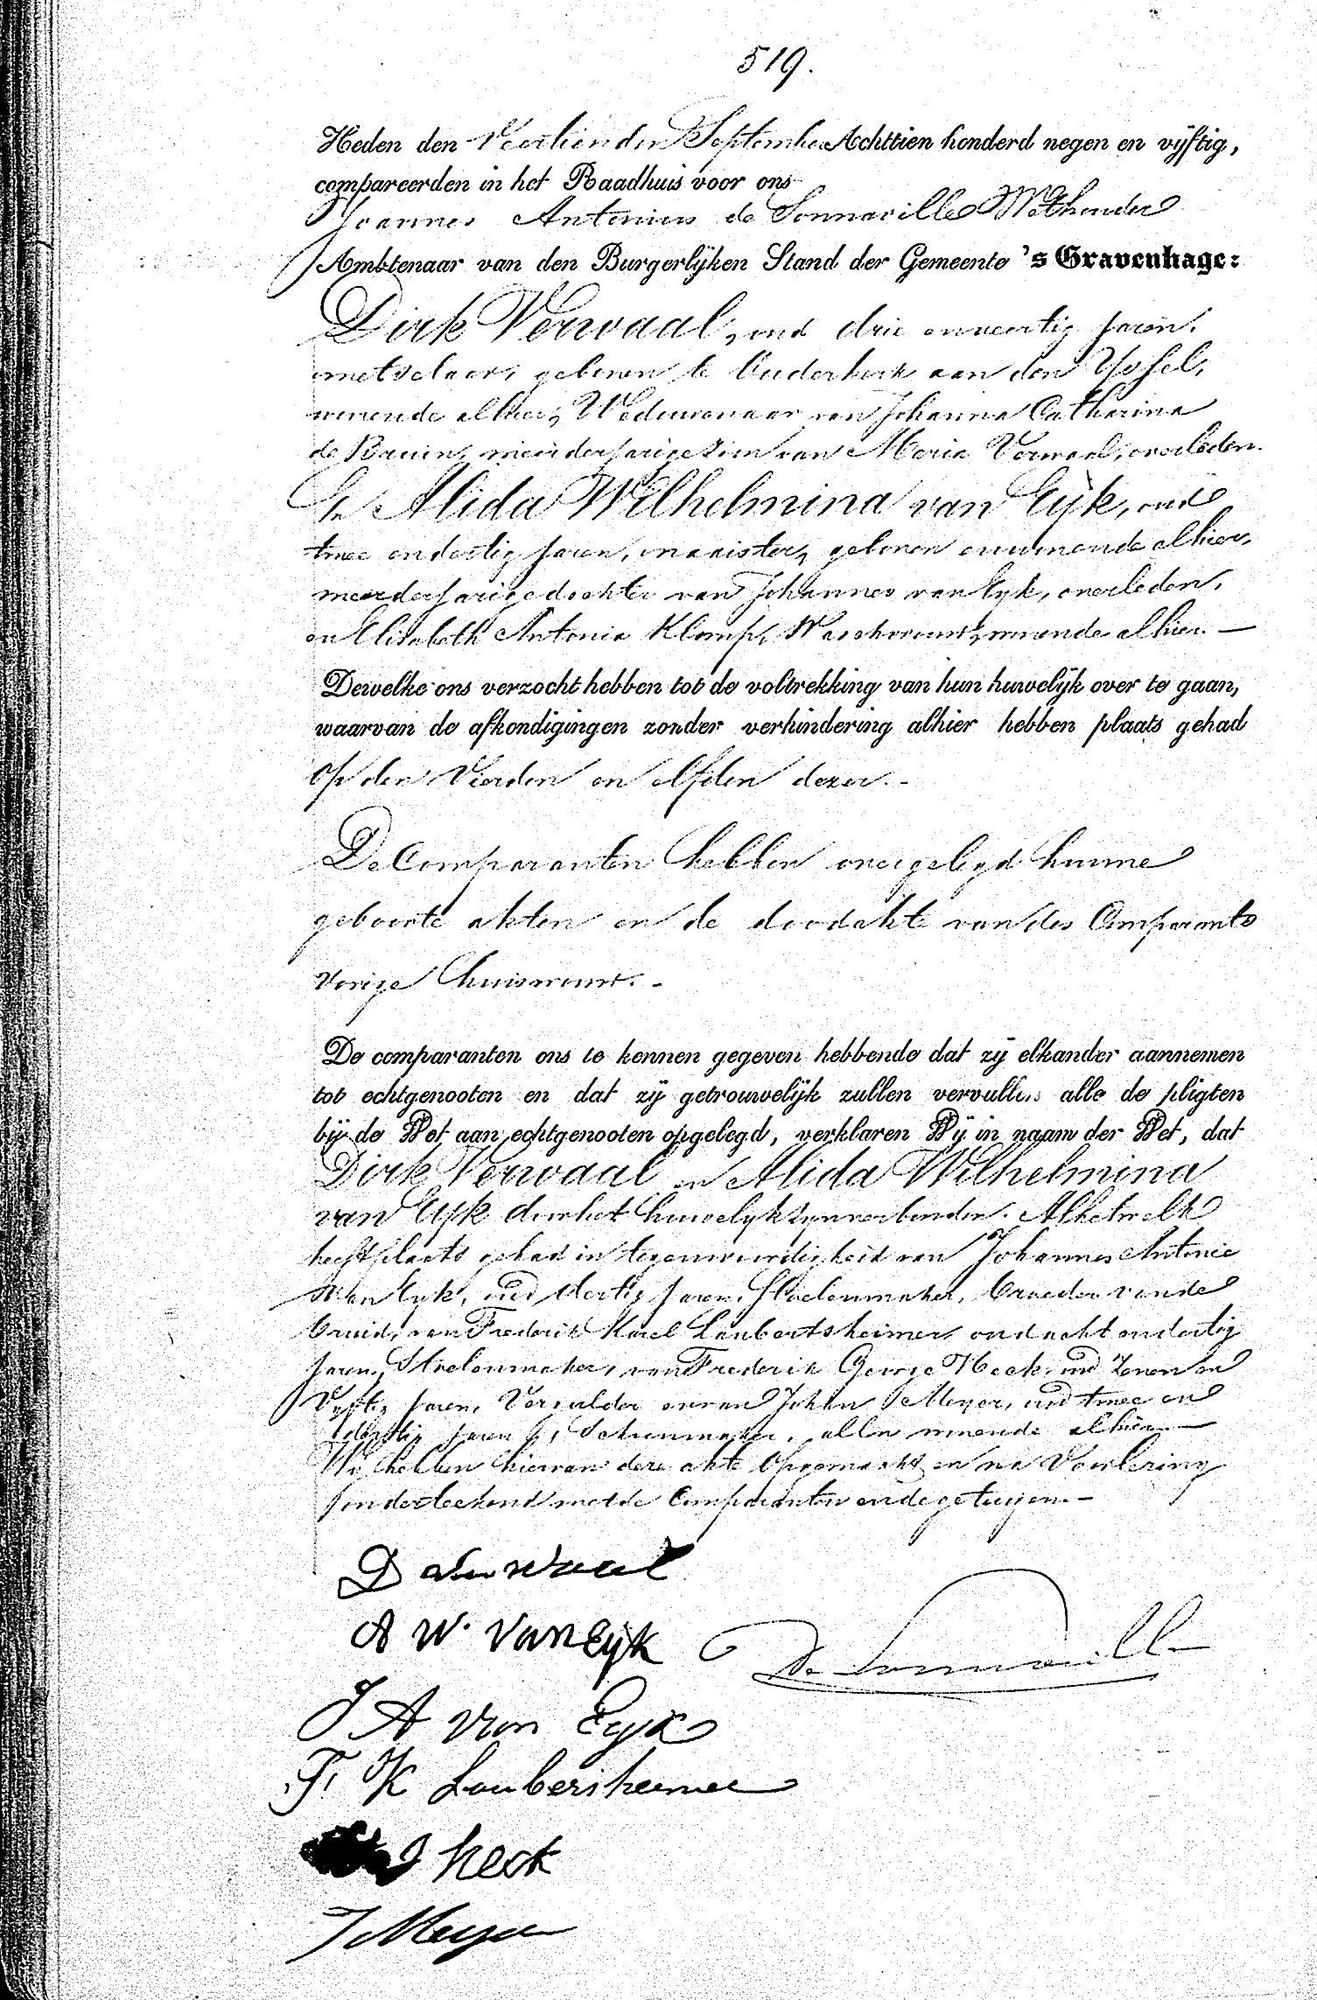 519.
Heden den Veertienden September Achttien honderd negen en vijftig,
compareerden in het Raadhuis voor ons
Joannes Antonius de Sonnaville Wethouder
Ambtenaar van den Burgerlijken Stand der Gemeente 's Gravenhage:
Dirk Verwaal, oud drie en veertig jaren,
metselaar, geboren te Ouderkerk aan den Yssel,
wonende alhier, Weduwenaar van Johanna Catharina
de Bruin, meerderjarige zoon van Maria Verwaal, overleden.
En Alida Wilhelmina van Eijk, oud
twee en dertig jaren, naaister, geboren en wonende alhier,
meerderjarige dochter van Johannes van Eijk, overleden,
en Elisabeth Antonia Klomp, Waschvrouw, wonende alhier. —
Dewelke ons verzocht hebben tot de voltrekking van hun huwelijk over te gaan,
waarvan de afkondigingen zonder verhindering alhier hebben plaats gehad
op den Vierden en elfden dezer. -
De Comparanten hebben overgelegd hunne
geboorte akten en de doodakte van des Comparants
vorige huisvrouw. -
De comparanten ons te kennen gegeven hebbende dat zij elkander aannemen
tot echtgenooten en dat zij getrouwelijk zullen vervullen alle de pligten
bij de Wet aan echtgenooten opgelegd, verklaren Wij in naam der Wet, dat
Dirk Verwaal en Alida Wilhelmina
van Eijk door het huwelijk zijn verbonden. Al hetwelk
heeft plaats gehad in tegenwoordigheid van Johannes Antonie
van Eijk, oud dertig jaren, Stoelenmaker, broeder van de
bruid, van Frederik Karel Laubertsheimer, oud acht en dertig
jaren, Stoelenmaker, van Frederik George Heck, oud Zeven en
Vijftig jaren, Verwulder en van Johan Meyer, oud twee en
dertig jaren, Schoenmaker, allen wonende alhier. —
Wij hebben hiervan deze akte opgemaakt en na Voorlezing
onderteekend met de Comparanten en de getuigen. —
D Verwaal
A W. van Eyk
De Sonnaville
J A van Eyk
F. K Laubersheimer
J Heck
J Meyer